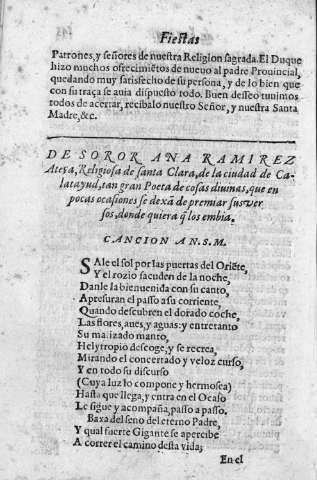 Fiestas
Patrones, y señores de nuestra Religion sagrada. El Duque
hizo muchos ofrecimiẽtos de nueuo al padre Prouincial,
quedando muy satisfecho de su persona, y de lo bien que
con su traça se auia dispuesto todo. Buen desseo tuuimos
todos de acertar, recibalo nuestro Señor, y nuestra Santa
Madre, &c.
DE SOROR ANA RAMIREZ
Religiosa de santa Clara, de la ciudad de Ca-
latayud, tan gran Poeta de cosas diuinas, que en
pocas ocasiones se dexã de premiar sus ver
sos, donde quiera q̃ los embia.
CANCION A N. S. M.
SAle el sol por las puertas del Oriẽte,
Y el rozio sacuden de la noche,
Danle la bienuenida con su canto,
Apresuran el passo a su corriente,
Quando descubren el dorado coche,
Las flores, aues, y aguas: y entretanto
Su matizado manto,
Helytropio descoge, y se recrea,
Mirando el concertado y veloz curso,
Y en todo su discurso
(Cuya luz lo compone y hermosea)
Hasta que llega, y entra en el Ocaso
Le sigue y acompaña, passo a passo.
Baxa del seno del eterno Padre,
Y qual fuerte Gigante se apercibe
A correr el camino desta vida;
En el